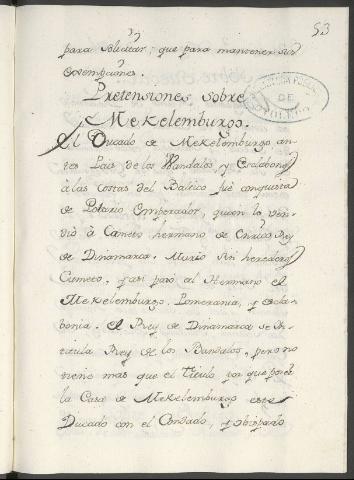 53
para solicitar, que para mantener sus
exempciones.
Pretensiones sobre
Mekelemburgo.
El Ducado de Mekelemburgo, an-
tes Pais de los Wandalos, y Esclabones
à las costas del Baltico fuè conquista
de Lotario Emperador, quien lo ven-
diò à Canuto hermano de Enrico Rey
de Dinamarca. Murio sin heredero
Canuto, y asi pasò al Hermano el
Mekelemburgo, Pomerania, y Escla-
bonia. El Rey de Dinamarca se in-
titula Rey de los Bandalos, pero no
tiene mas que el Titulo, porque posèe
la Casa de Mekelemburgo este
Ducado con el Condado, y obispado
DE
TOLEDO